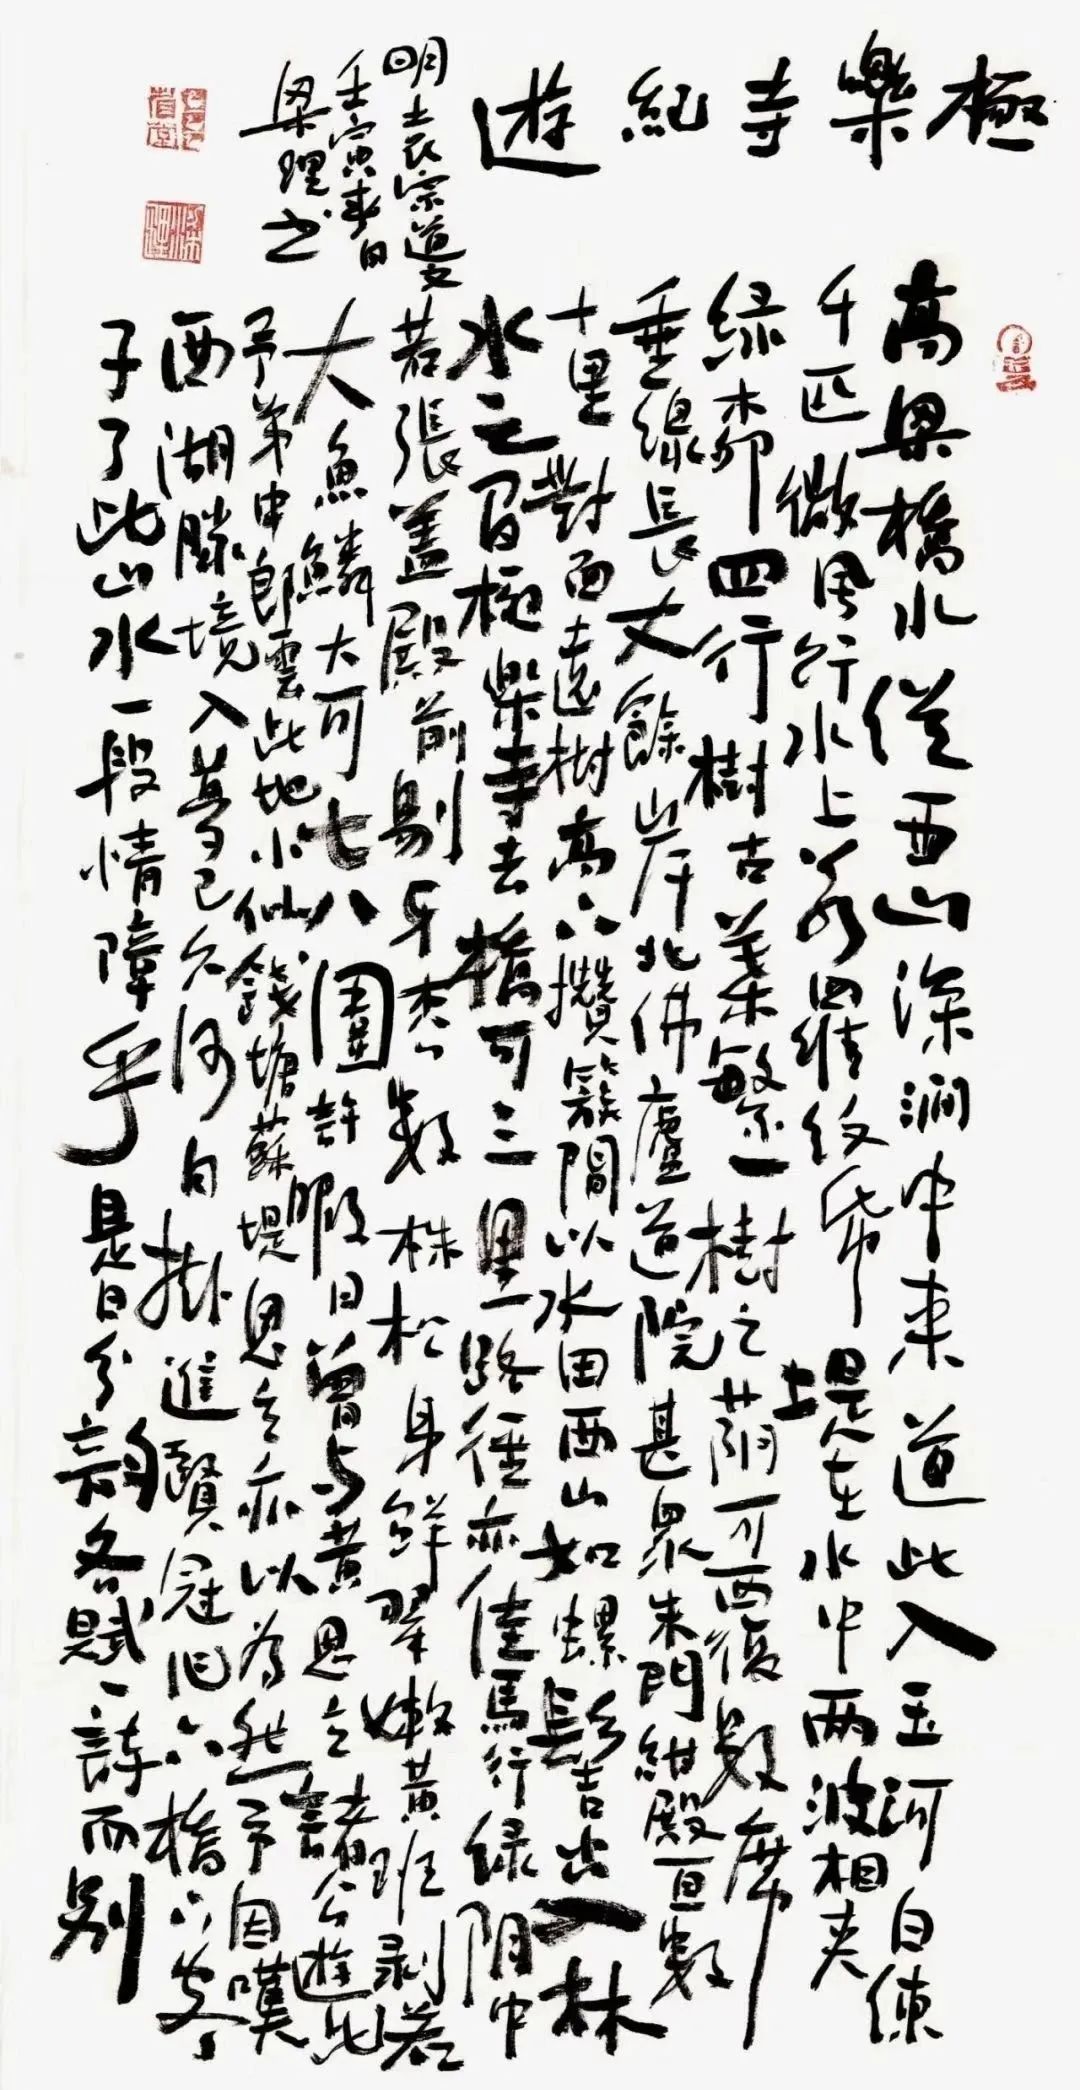 極樂寺紀遊
高梁橋水從西山深澗中来道此入玉河白練
千匹微風行水上若羅纹紙堤在水中兩波相夾
緑柳四行樹古葉繁一樹之蔭可覆數席
垂線長丈餘岸北佛廬道院甚衆朱門紺殿亘數
十里對面遠樹高下攢簇間以水田西山如螺髻出入林
水之間極樂寺去橋可三里路徑亦佳馬行緑陰中
若張盖殿前剔牙松數株松身鮮翠嫩黃班剥若
大魚鱗大可七八圍許暇日曾与黃思立諸公遊此
予弟中郎雲此地小似錢塘蘇堤思立亦以為然予因嘆
西湖勝境入夢已久何日掛進賢冠作六橋下客
子了此山水一段情障乎是日分韻各賦一詩而别
明袁宗道文
壬寅春日
梁理書